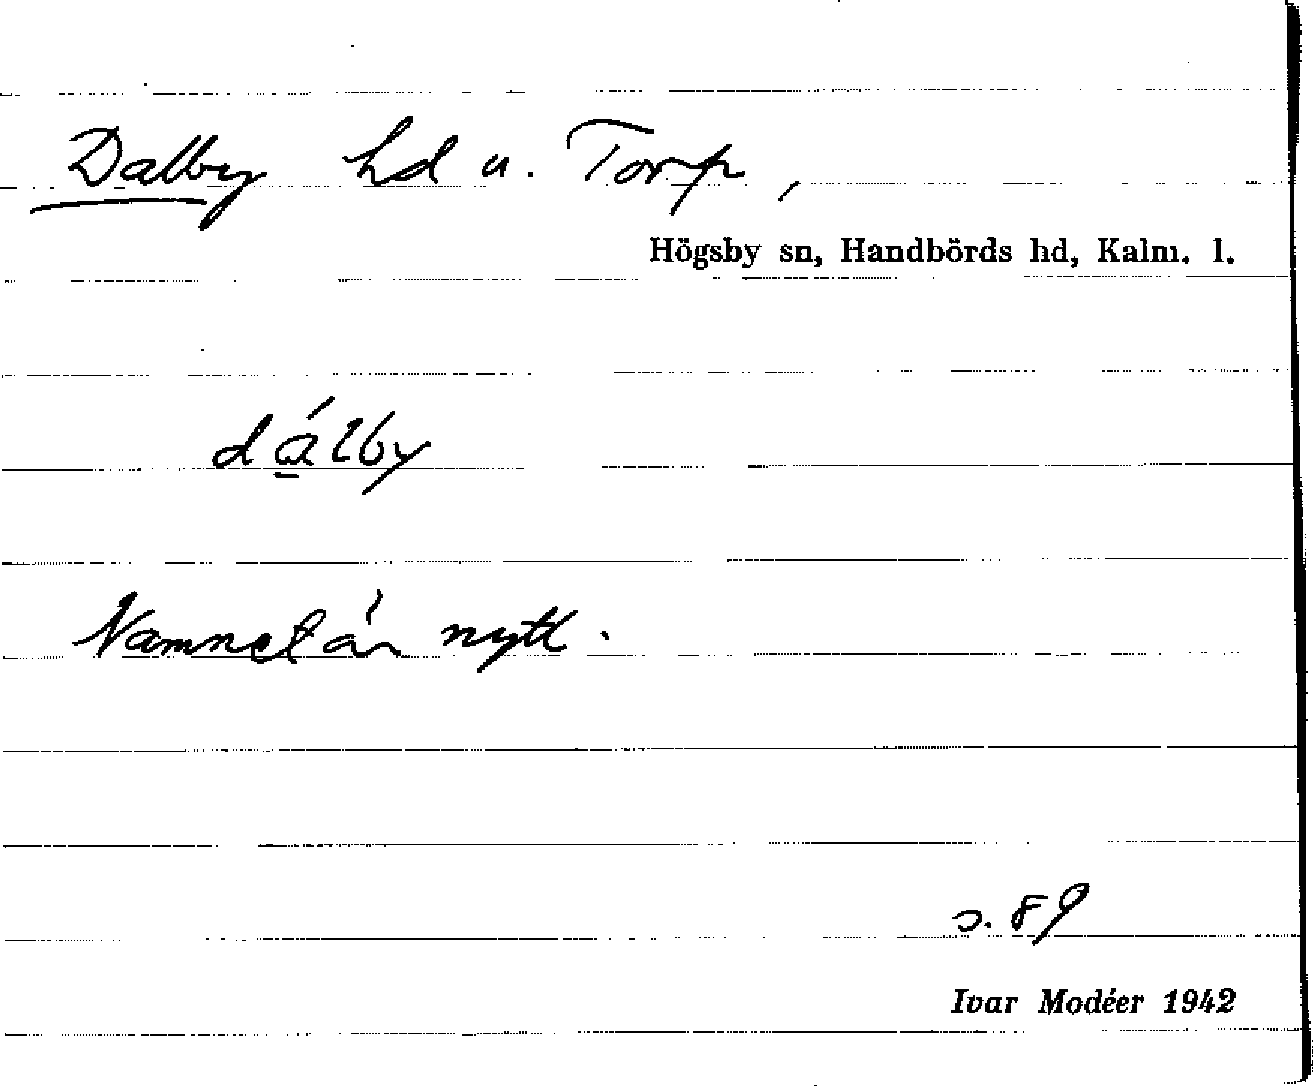 Dalby hd u. Torp,
Högsby sn, Handbörds hd, Kalm. l.
dá̱lby
Namnet är nytt.
s. 89
Ivar Modéer 1942